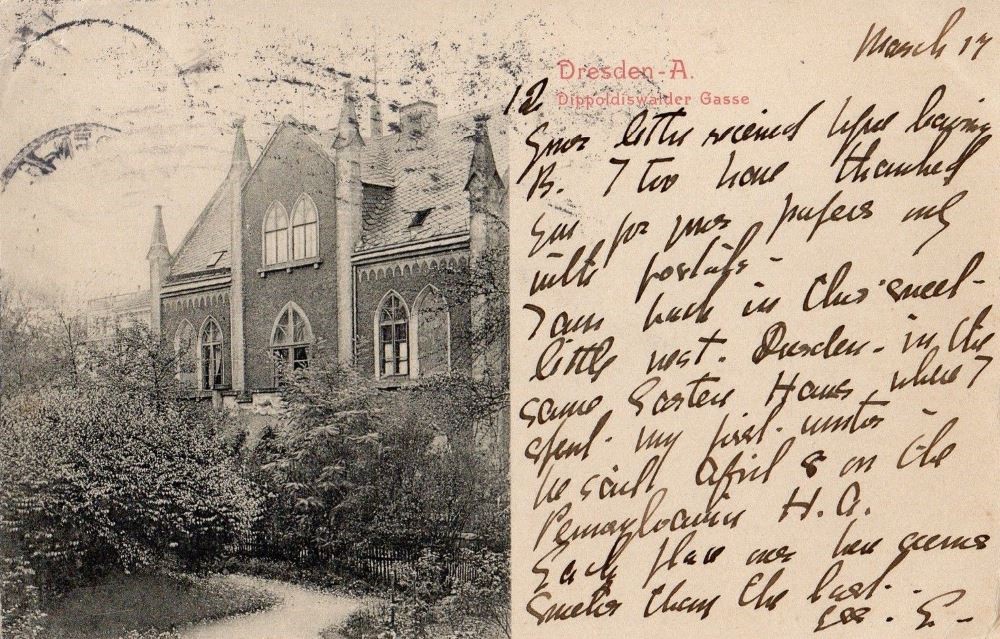 March 17
Dresden-A.
Dippoldiswalder Gasse
12
Your letter received before leaving
B. I too have thanked
you for your papers and
with postals -
I am back in this sweet -
little nest. Dresden - in the
same Garten Haus where I
spent my first winter -
We sail April 8 on the
Pennsylvania H. A.
Each place now here seems
sweeter than the last.
E. -